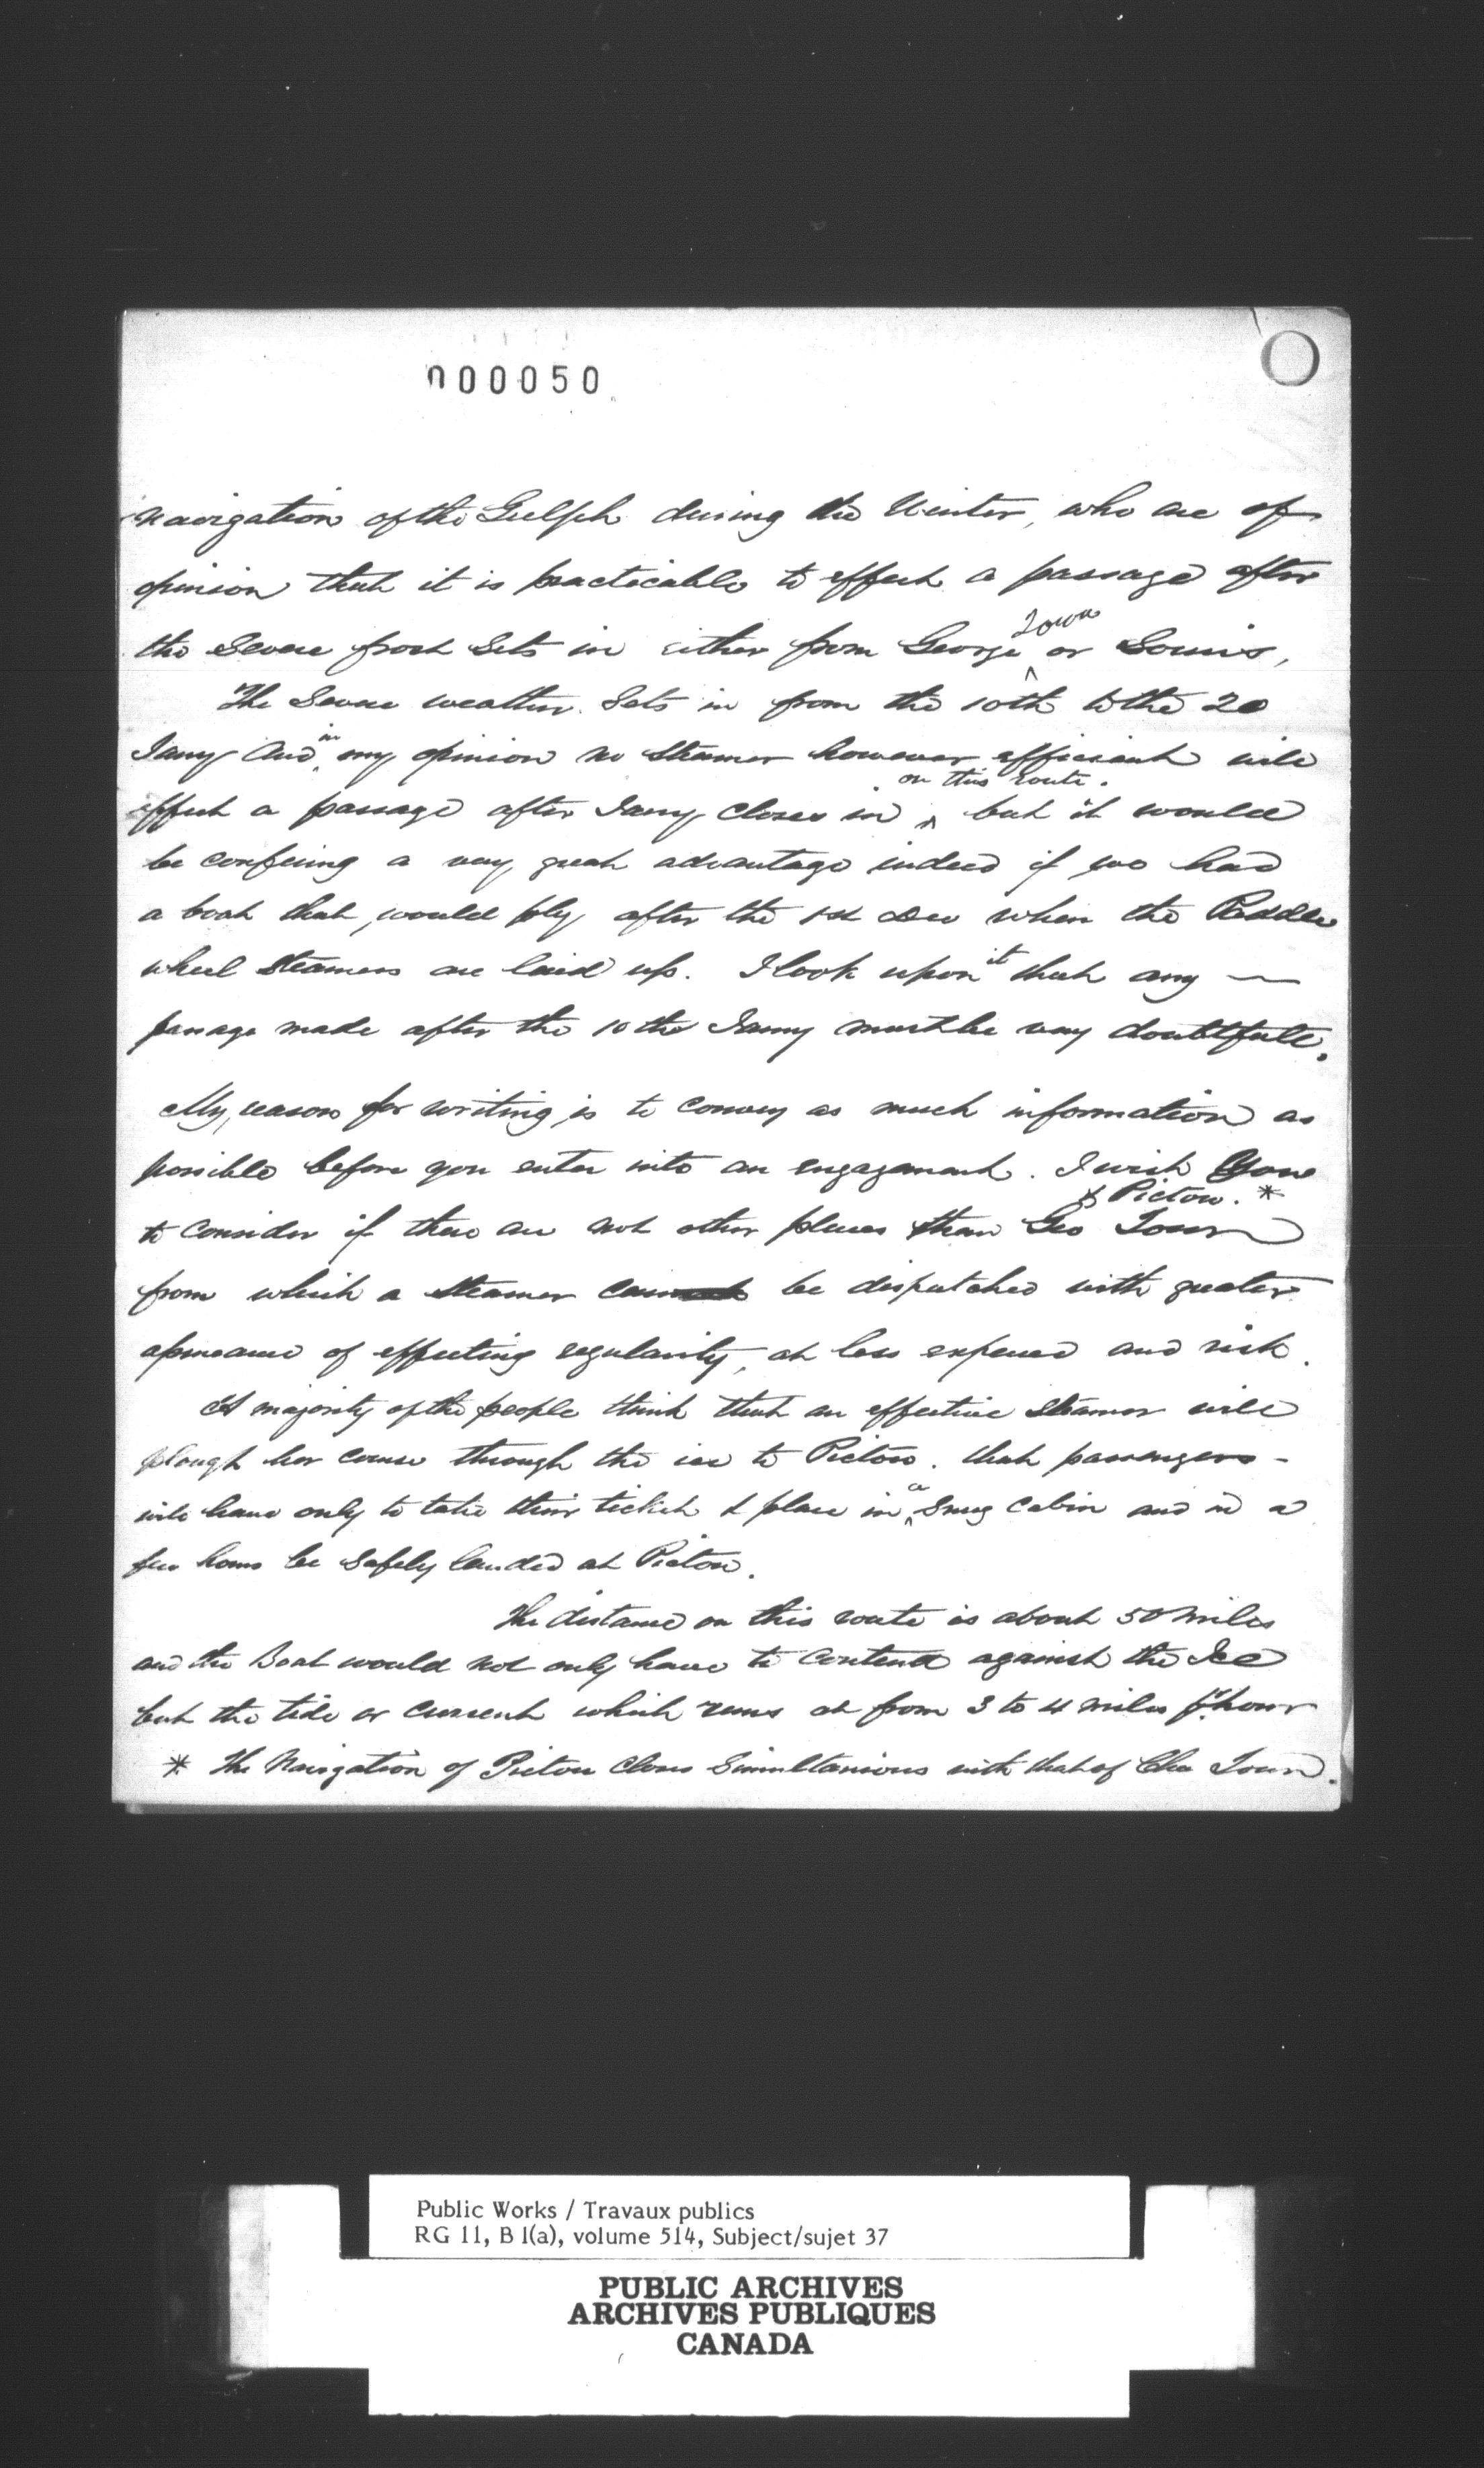 000050
navigation of the Gulph during the Winter, who are of
opinion that it is practicable to effect a passage after
the Severe frost Sets in either from George ^Town or Souris,
The Severe weather Sets in from the 10th to the 20
Jany And ^in my opinion no Steamer however efficient will
effect a passage after Jany closes in ^on this route. but it would
be confering a very great advantage indeed if we had
a boat that would ply after the 1st Dec when the Paddle
wheel Steamers are laid up. I look upon ^it that any —
passage made after the 10 the Jany must be very doubtfull.
My reason for writing is to convey as much information as
possible before you enter into an engagement. I wish You
to consider if there are not other places than Geo Town & Pictou. *
from which a Steamer can be dispatched with greater
of effecting regularity, at less expence and risk.
A majority of the people think that an effective Steamer will
plough her course through the ice to Pictou. that passengers -
will have only to take their ticket & place in ^a Snug Cabin and in a
few hours be Safely landed at Pictou.
The distance on this route is about 50 miles
and the Boat would not only have to Contend against the Ice
but the tide or Current which runs at from 3 to 4 miles pr hour
* The Navigation of Pictou closes Simultanious with that of Cha Town.
Public Works / Travaux publics
RG 11, B 1(a), volume 514, Subject/sujet 37
PUBLIC ARCHIVES
ARCHIVES PUBLIQUES
CANADA